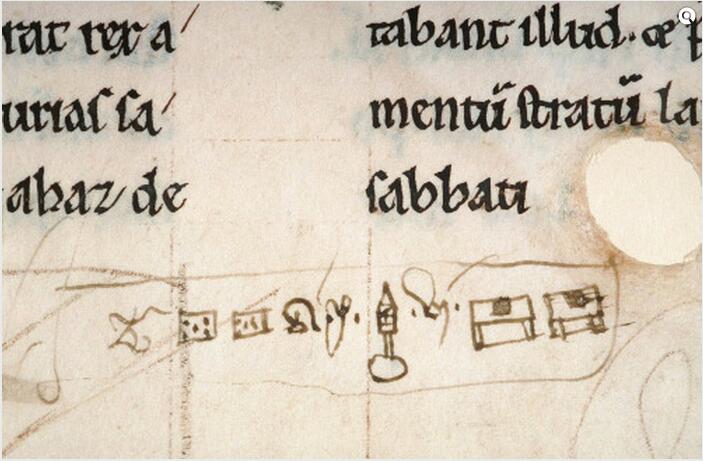 rat rex a
urias sa
ahaz de
tabant illud. et p
mentū stratū la
sabbati